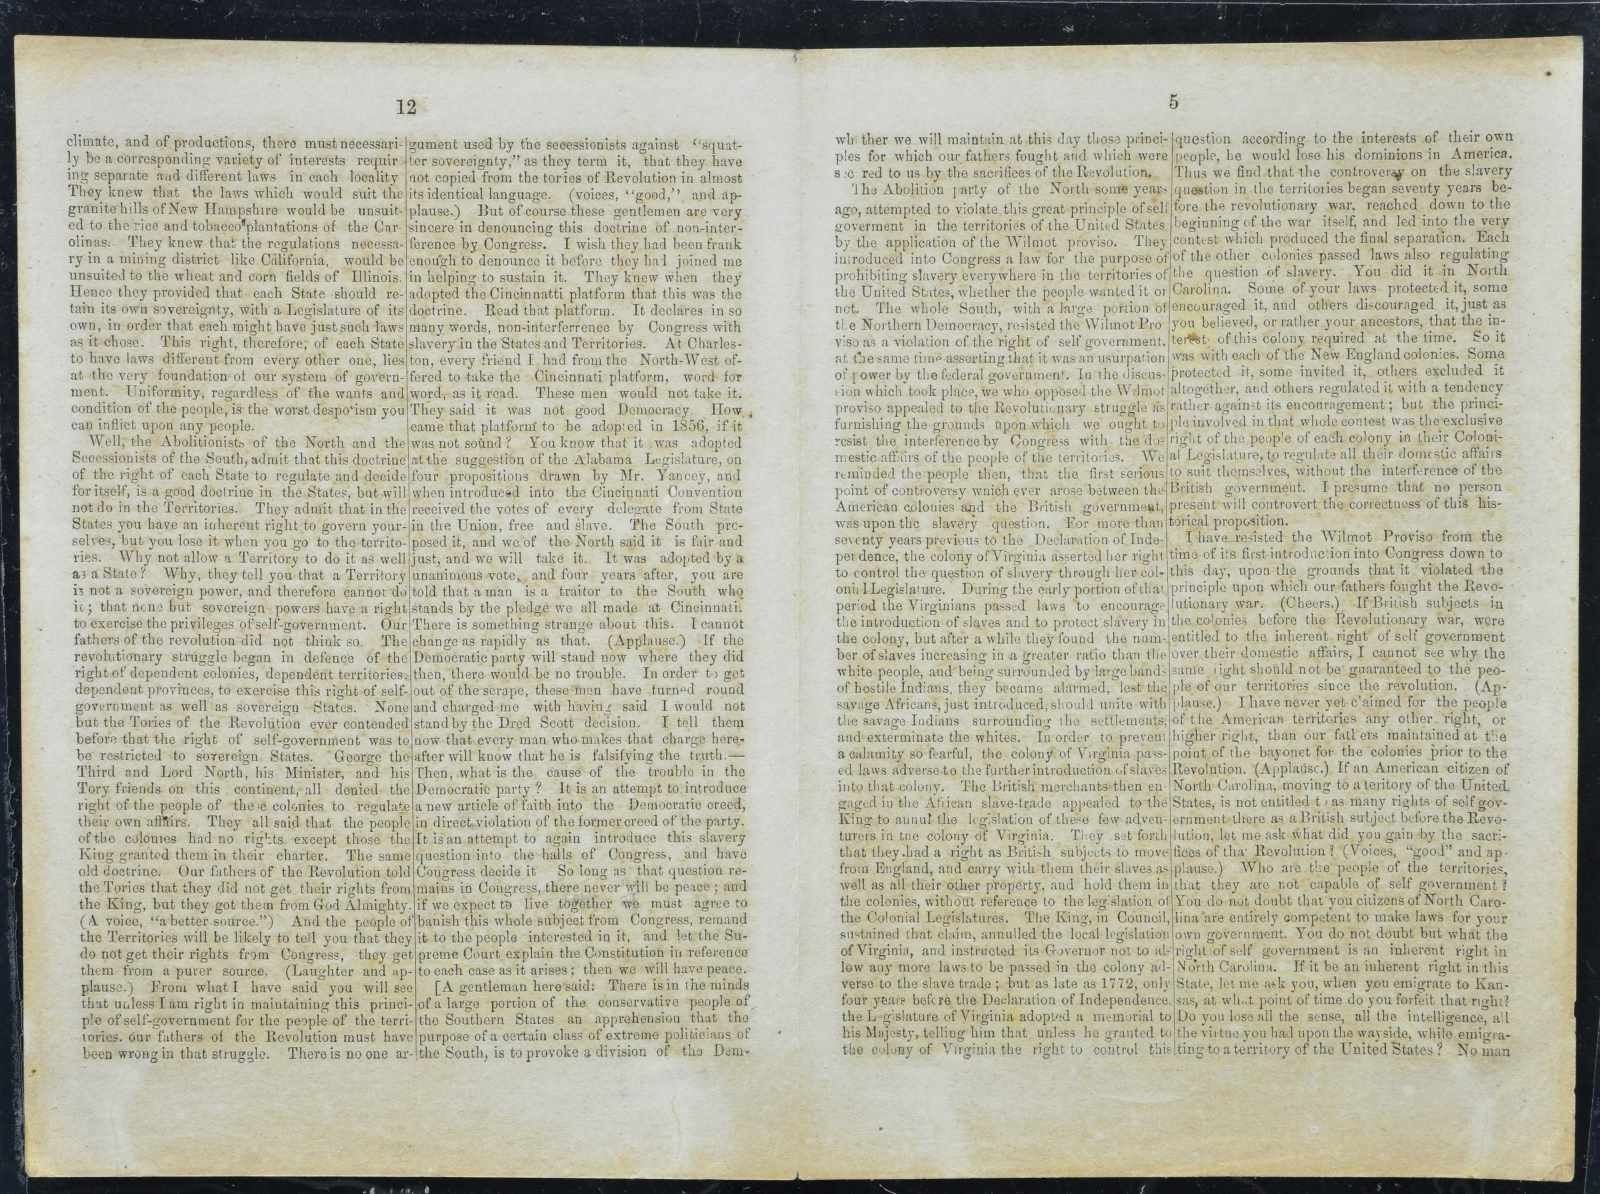 12
climate, and of productions, there must necessari-
ly be a corresponding variety of interests requir-
ing separate and different laws in each locality
They knew that the laws which would suit the
granite hills of New Hampshire would be unsuit-
ed to the rice and tobacco plantations of the Car
olinas. They knew that the regulations necessa-
ry in a mining district like California, would be
unsuited to the wheat and corn fields of Illinois.
Hence they provided that each State should re-
tain its own sovereignty, with a Legislature of its
own, in order that each might have just such laws
as it chose. This right, therefore, of each State
to have laws different from every other one, lies
at the very foundation of our system of govern-
ment. Uniformity, regardless of the wants and
condition of the people, is the worst despotism you
can inflict upon any people.
Well, the Abolitionists of the North and the
Secessionists of the South, admit that this doctrine
of the right of each State to regulate and decide
for itself, is a good doctrine in the States, but will
not do in the Territories. They admit that in the
States you have an inherent right to govern your-
selves, but you lose it when you go to the territo-
ries. Why not allow a Territory to do it as well
as a State? Why, they tell you that a Territory
is not a sovereign power, and therefore cannot do
it; that none but sovereign powers have a right
to exercise the privileges of self-government. Our
fathers of the revolution did not think so. The
revolutionary struggle began in defence of the
right of dependent colonies, dependent territories,
dependent provinces, to exercise this right of self-
government as well as sovereign States. None
but the Tories of the Revolution ever contended
before that the right of self-government was to
be restricted to sovereign States. George the
Third and Lord North, his Minister, and his
Tory friends on this continent, all denied the
right of the people of these colonies to regulate
their own affairs. They all said that the people
of the colonies had no rights except those the
King granted them in their charter. The same
old doctrine. Our fathers of the Revolution told
the Tories that they did not get their rights from
the King, but they got them from God Almighty.
(A voice, "a better source.") And the people of
the Territories will be likely to tell you that they
do not get their rights from Congress, they get
them from a purer source. (Laughter and ap-
plause.) From what I have said you will see
that unless I am right in maintaining this princi-
ple of self-government for the people of the terri-
tories. our fathers of the Revolution must have
been wrong in that struggle. There is no one ar-
gument used by the secessionists against "squat-
ter sovereignty," as they term it, that they have
not copied from the tories of Revolution in almost
its identical language. (voices, "good," and ap-
plause.) But of course these gentlemen are very
sincere in denouncing this doctrine of non-inter-
ference by Congress. I wish they had been frank
enough to denounce it before they had joined me
in helping to sustain it. They knew when they
adopted the Cincinnatti platform that this was the
doctrine. Read that platform. It declares in so
many words, non-interferrence by Congress with
slavery in the States and Territories. At Charles-
ton, every friend I had from the North-West of-
fered to take the Cincinnati platform, word for
word, as it read. These men would not take it.
They said it was not good Democracy. How
came that platform to be adopted in 1856, if it
was not sound? You know that it was adopted
at the suggestion of the Alabama Legislature, on
four propositions drawn by Mr. Yancey, and
when introduced into the Cincinnati Convention
received the votes of every delegate from State
in the Union, free and slave. The South pro-
posed it, and we of the North said it is fair and
just, and we will take it. It was adopted by a
unanimous vote, and four years after, you are
told that a man is a traitor to the South who
stands by the pledge we all made at Cincinnatii.
There is something strange about this. I cannot
change as rapidly as that. (Applause.) If the
Democratic party will stand now where they did
then, there would be no trouble. In order to get
out of the scrape, these men have turned round
and charged me with having said I would not
stand by the Dred Scott decision. I tell them
now that every man who makes that charge here-
after will know that he is falsifying the truth.—
Then, what is the cause of the trouble in the
Democratic party? It is an attempt to introduce
a new article of faith into the Democratic creed,
in direct violation of the former creed of the party.
It is an attempt to again introduce this slavery
question into the halls of Congress, and have
Congress decide it So long as that question re-
mains in Congress, there never will be peace; and
if we expect to live together we must agree to
banish this whole subject from Congress, remand
it to the people interested in it, and let the Su-
preme Court explain the Constitution in reference
to each case as it arises; then we will have peace.
[A gentleman here said: There is in the minds
of a large portion of the conservative people of
the Southern States an apprehension that the
purpose of a certain class of extreme politicians of
the South, is to provoke a division of the Dem-
5
wh ther we will maintain at this day those princi-
ples for which our fathers fought and which were
s c red to us by the sacrifices of the Revolution.
The Abolition party of the North some years
ago, attempted to violate this great principle of self
goverment in the territories of the United States
by the application of the Wilmot proviso. They
introduced into Congress a law for the purpose of
prohibiting slavery everywhere in the territories of
the United States, whether the people wanted it or
not. The whole South, with a large portion of
the Northern Democracy, resisted the Wilmot Pro
viso as a violation of the right of self government.
at the same time asserting that it was an usurpation
of power by the federal government. In the discus-
sion which took place, we who opposed the Wilmot
proviso appealed to the Revolutionary struggle as
furnishing the grounds upon which we ought to
resist the interference by Congress with the do-
mestic affairs of the people of the territories. We
reminded the people then, that the first serious
point of controversy which ever arose between the
American colonies and the British government,
was upon the slavery question. For more than
seventy years previous to the Declaration of Inde-
pendence, the colony of Virginia asserted her right
to control the question of slavery through her col-
onial Legislature. During the early portion of that
period the Virginians passed laws to encourage
the introduction of slaves and to protect slavery in
the colony, but after a while they found the num-
ber of slaves increasing in a greater ratio than the
white people, and being surrounded by large bands
of hostile Indians, they became alarmed, lest the
savage Africans, just introduced, should unite with
the savage Indians surrounding the settlements,
and exterminate the whites. In order to prevent
a calamity so fearful, the colony of Virginia pass-
ed laws adverse to the further introduction of slaves
into that colony. The British merchants then en
gaged in the African slave-trade appealed to the
King to annul the legislation of these few adven-
turers in the colony of Virginia. They set forth
that they had a right as British subjects to move
from England, and carry with them their slaves as
well as all their other property, and hold them in
the colonies, without reference to the legislation of
the Colonial Legislatures. The King, in Council,
sustained that claim, annulled the local legislation
of Virginia, and instructed its Governor not to al-
low any more laws to be passed in the colony ad-
verse to the slave trade; but as late as 1772, only
four years before the Declaration of Independence,
the Legislature of Virginia adopted a memorial to
his Majesty, telling him that unless he granted to
the colony of Virginia the right to control this
question according to the interests of their own
people, he would lose his dominions in America.
Thus we find that the controversy on the slavery
question in the territories began seventy years be-
fore the revolutionary war, reached down to the
beginning of the war itself, and led into the very
contest which produced the final separation. Each
of the other colonies passed laws also regulating
the question of slavery. You did it in North
Carolina. Some of your laws protected it, some
encouraged it, and others discouraged it, just as
you believed, or rather your ancestors, that the in-
terest of this colony required at the time. So it
was with each of the New England colonies. Some
protected it, some invited it, others excluded it
altogether, and others regulated it with a tendency
rather against its encouragement; but the princi-
ple involved in that whole contest was the exclusive
right of the people of each colony in their Coloni-
al Legislature, to regulate all their domestic affairs
to suit themselves, without the interference of the
British government. I presume that no person
present will controvert the correctness of this his-
torical proposition.
I have resisted the Wilmot Proviso from the
time of its first introduction into Congress down to
this day, upon the grounds that it violated the
principle upon which our fathers fought the Revo-
lutionary war. (Cheers.) If British subjects in
the colonies before the Revolutionary war, were
entitled to the inherent right of self government
over their domestic affairs, I cannot see why the
same right should not be guaranteed to the peo-
ple of our territories since the revolution. (Ap-
plause.) I have never yet claimed for the people
of the American territories any other right, or
higher right, than our fathers maintained at the
point of the bayonet for the colonies prior to the
Revolution. (Applause.) If an American citizen of
North Carolina, moving to a teritory of the United
States, is not entitled to as many rights of self gov-
ernment there as a British subject before the Revo-
lution, let me ask what did you gain by the sacri-
fices of tha' Revolution? (Voices, "good" and ap-
plause.) Who are the people of the territories,
that they are not capable of self government?
You do not doubt that you citizens of North Caro-
lina are entirely competent to make laws for your
own government. You do not doubt but what the
right of self government is an inherent right in
North Carolina. If it be an inherent right in this
State, let me ask you, when you emigrate to Kan-
sas, at what point of time do you forfeit that right?
Do you lose all the sense, all the intelligence, all
the virtue you had upon the wayside, while emigra-
ting to a territory of the United States? No man